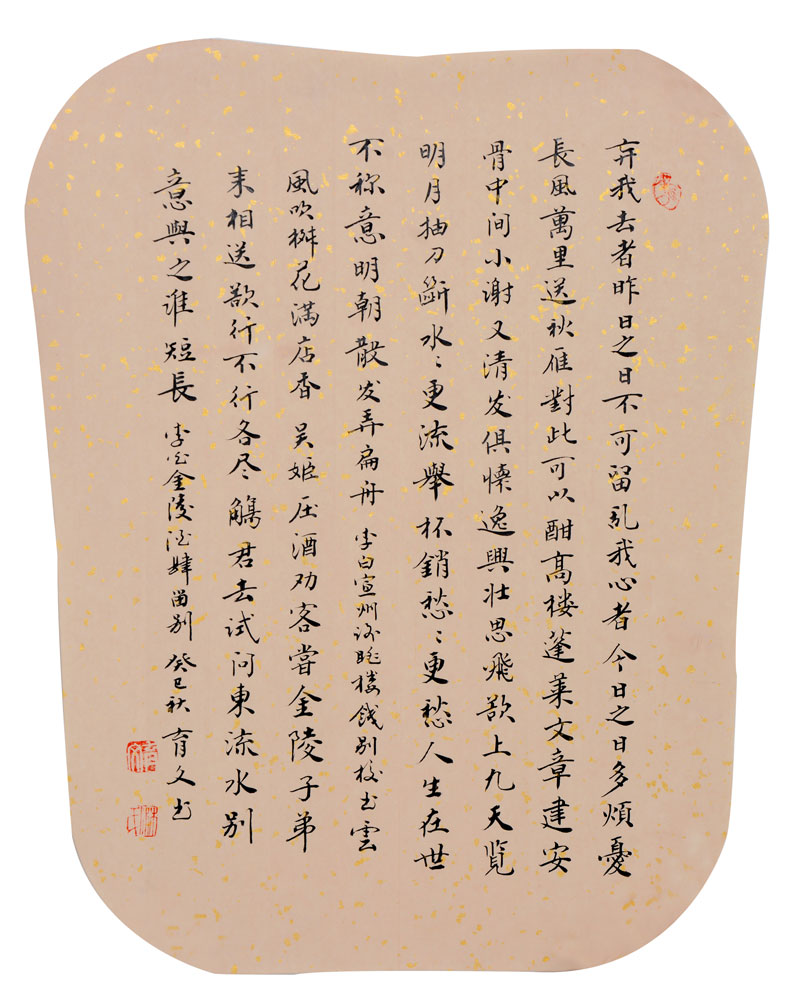 弃我去者昨日之日不可留乱我心者今日之日多煩憂
長風萬里送秋雁對此可以酣髙楼蓬莱文章建安
骨中间小谢又清发俱懐逸興壮思飛欲上九天览
明月抽刀斷水〻更流舉杯銷愁〻更愁人生在世
不称意明朝散发弄扁舟 李白宣州谢眺楼餞别校书雲
風吹栁花满店香 吴姬压酒劝客嘗金陵子弟
来相送欲行不行各尽觴君去试问東流水别
意與之谁短長 李白金陵酒肆留别 癸巳秋 育文书